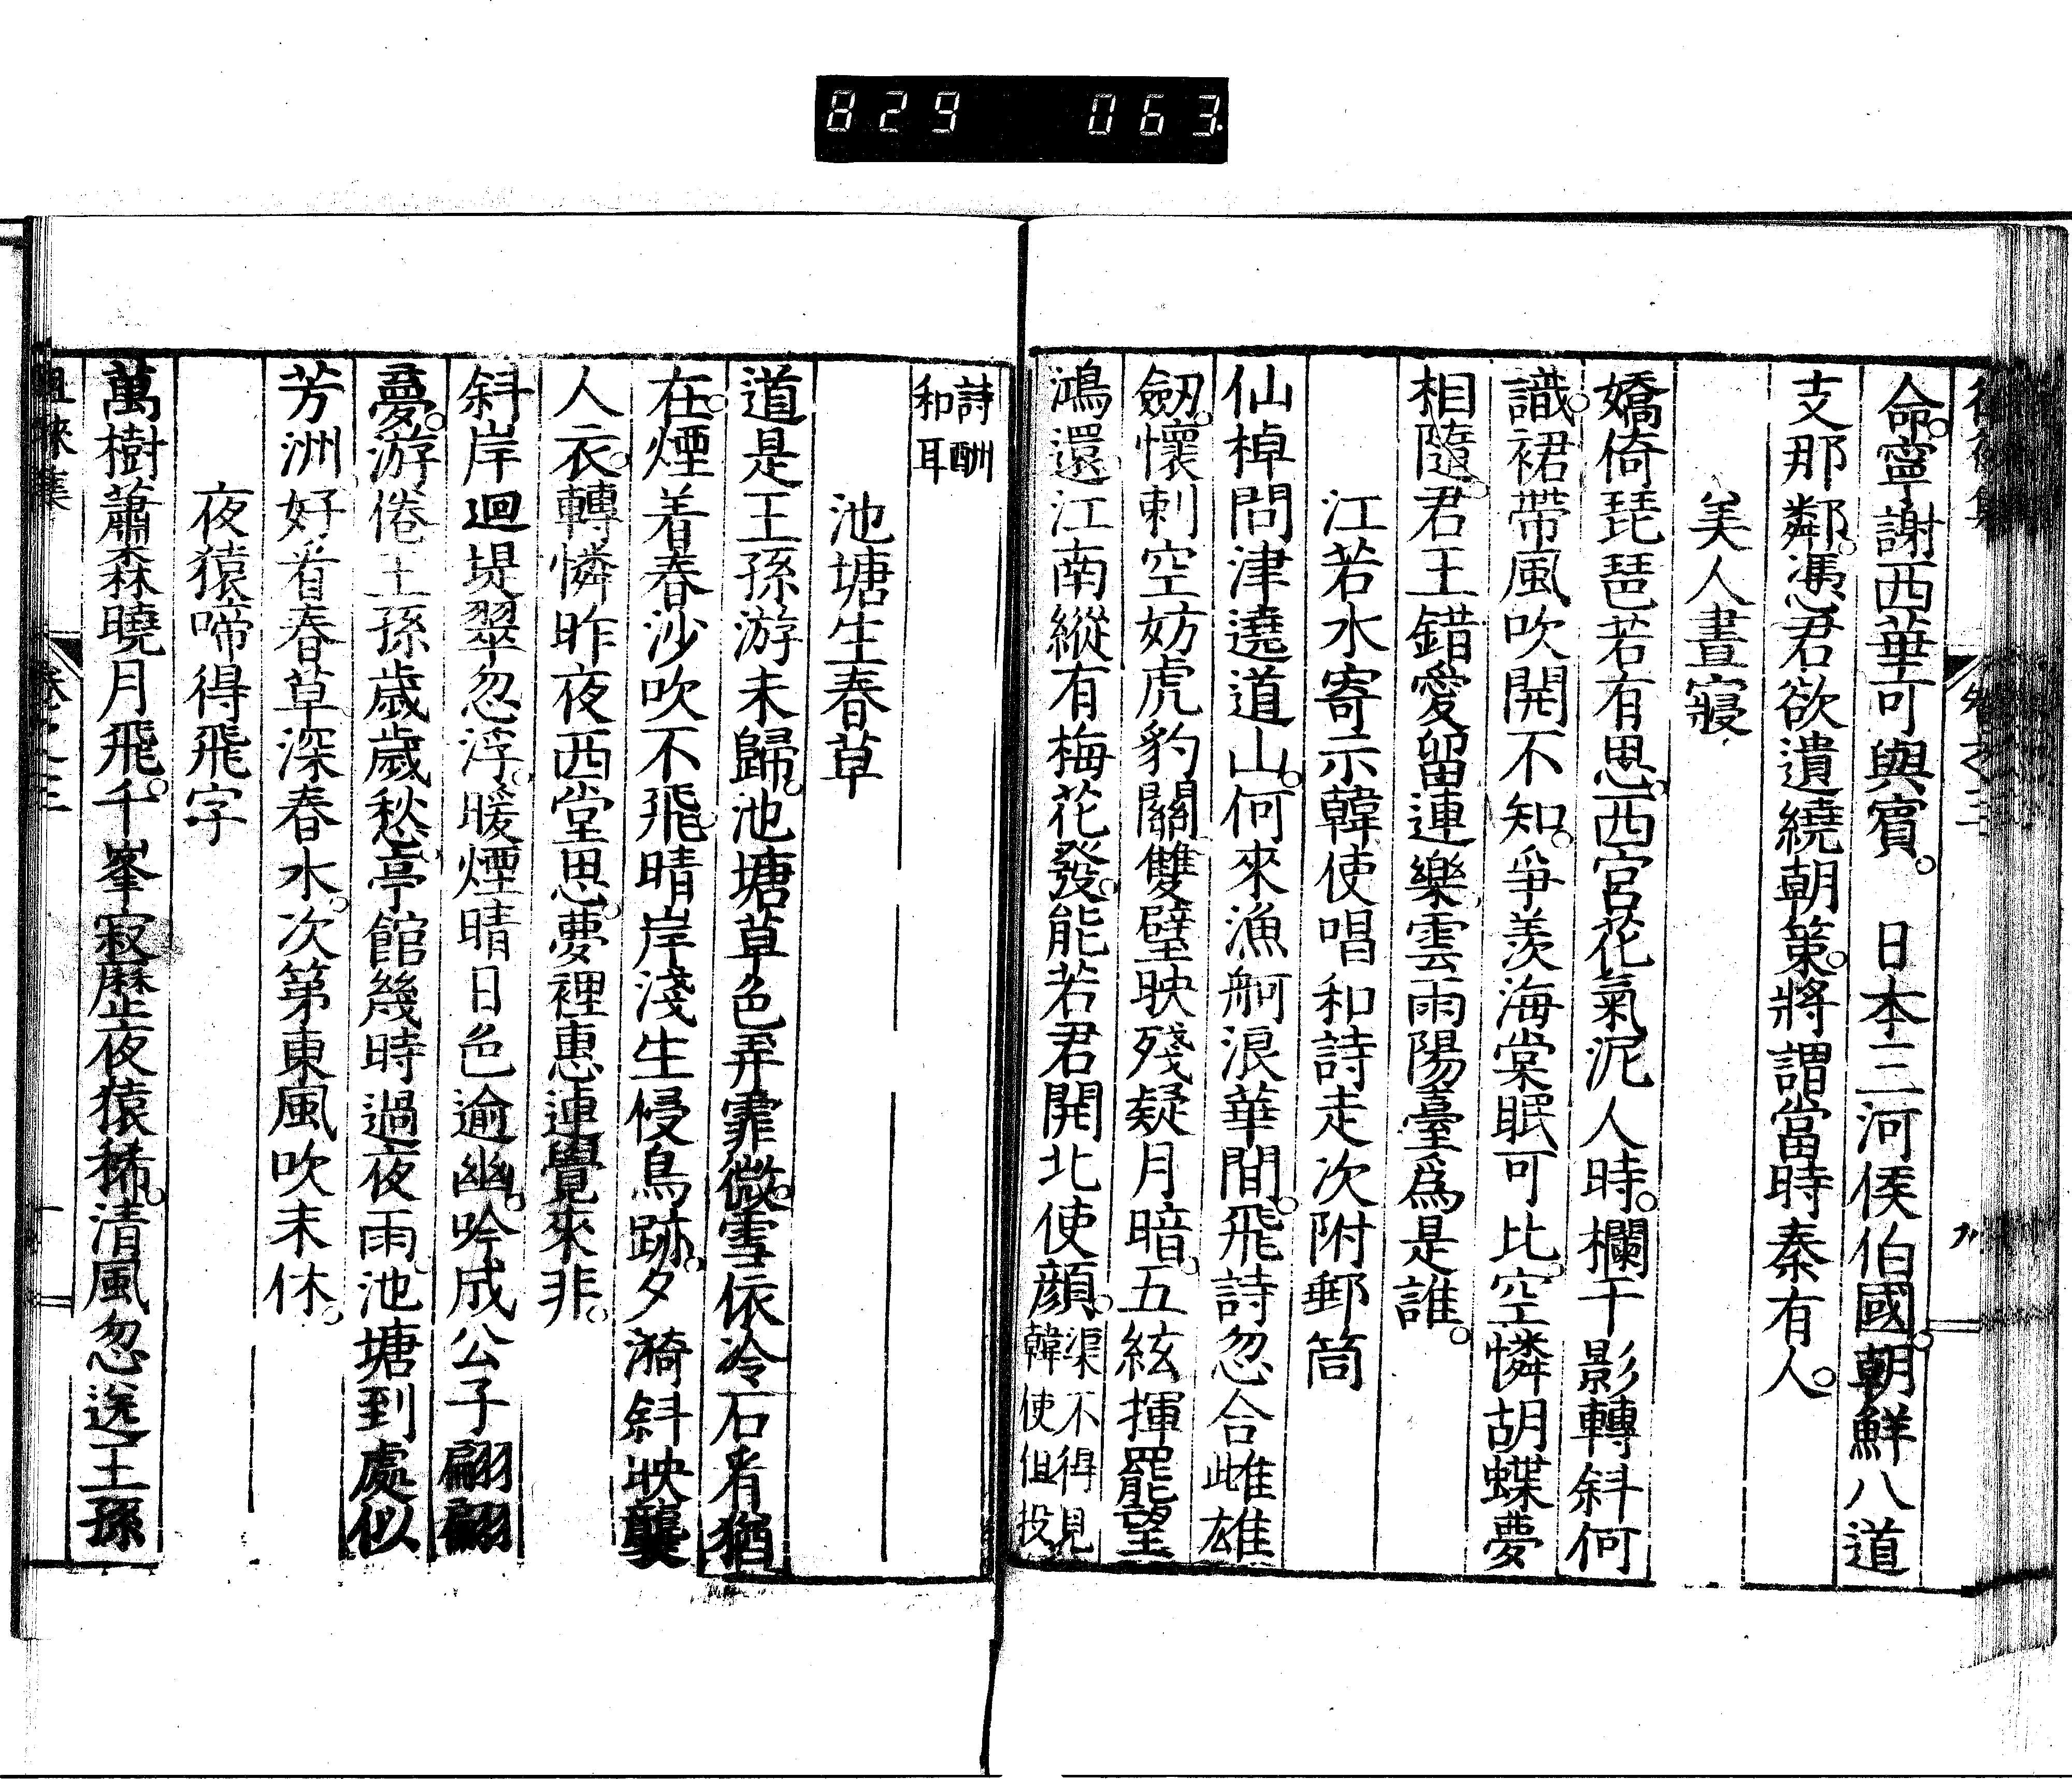 829 063
命寧謝西華可與賓。 日本三河侯伯國。朝鮮八道
支那鄰。憑君欲遺繞朝策。將謂當時秦有人。
美人晝寢
嬌倚琵琶若有思。西宮花氣泥人時。欄干影轉斜何
識。裙帶風吹開不知。爭羨海棠眠可比。空憐胡蝶夢
相隨。君王錯愛留連樂。雲雨陽臺爲是誰。
江若水寄示韓使唱和詩走次附郵筒
仙棹問津遶道山。何來漁舸浪華間。飛詩忽合雌雄
劔。懷刺空妨虎豹關。雙璧映殘疑月暗。五絃揮罷望
鴻還。江南縱有梅花發。能若君開北使顏。渠不得見韓使但投
詩酬和耳
池塘生春草
道是王孫游未歸。池塘草色弄霏微。雪依冷石看猶
在。煙着春沙吹不飛。晴岸淺生侵鳥跡。夕漪斜映襲
人衣。轉憐昨夜西堂思。夢裡惠連覺來非。
斜岸迴堤翠忽浮。暖煙晴日色逾幽。吟成公子翩翩
夢。游倦王孫歲歲愁。亭館幾時過夜雨。池塘到處似
芳洲。好看春草深春水。次第東風吹未休。
夜猿啼得飛字
萬樹蕭森曉月飛。千峯寂歷夜猿稀。清風忽送王孫
徂徠集 卷之三